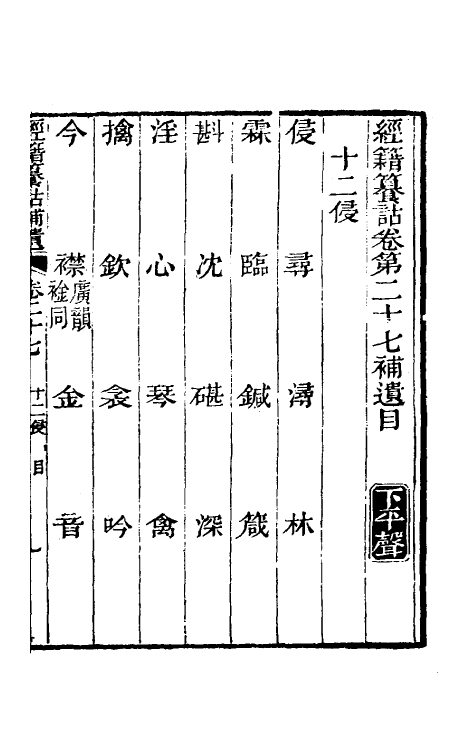 經籍籑詁卷第二十七補遺目 下平聲
十二侵
侵 尋 潯 林
霖 臨 鍼 箴
斟 沈 碪 深
淫 心 琴 禽
擒 欽 衾 吟
今 襟廣韻衿同 金 音
經籍籑詁補遺 卷二十七 十二侵 目